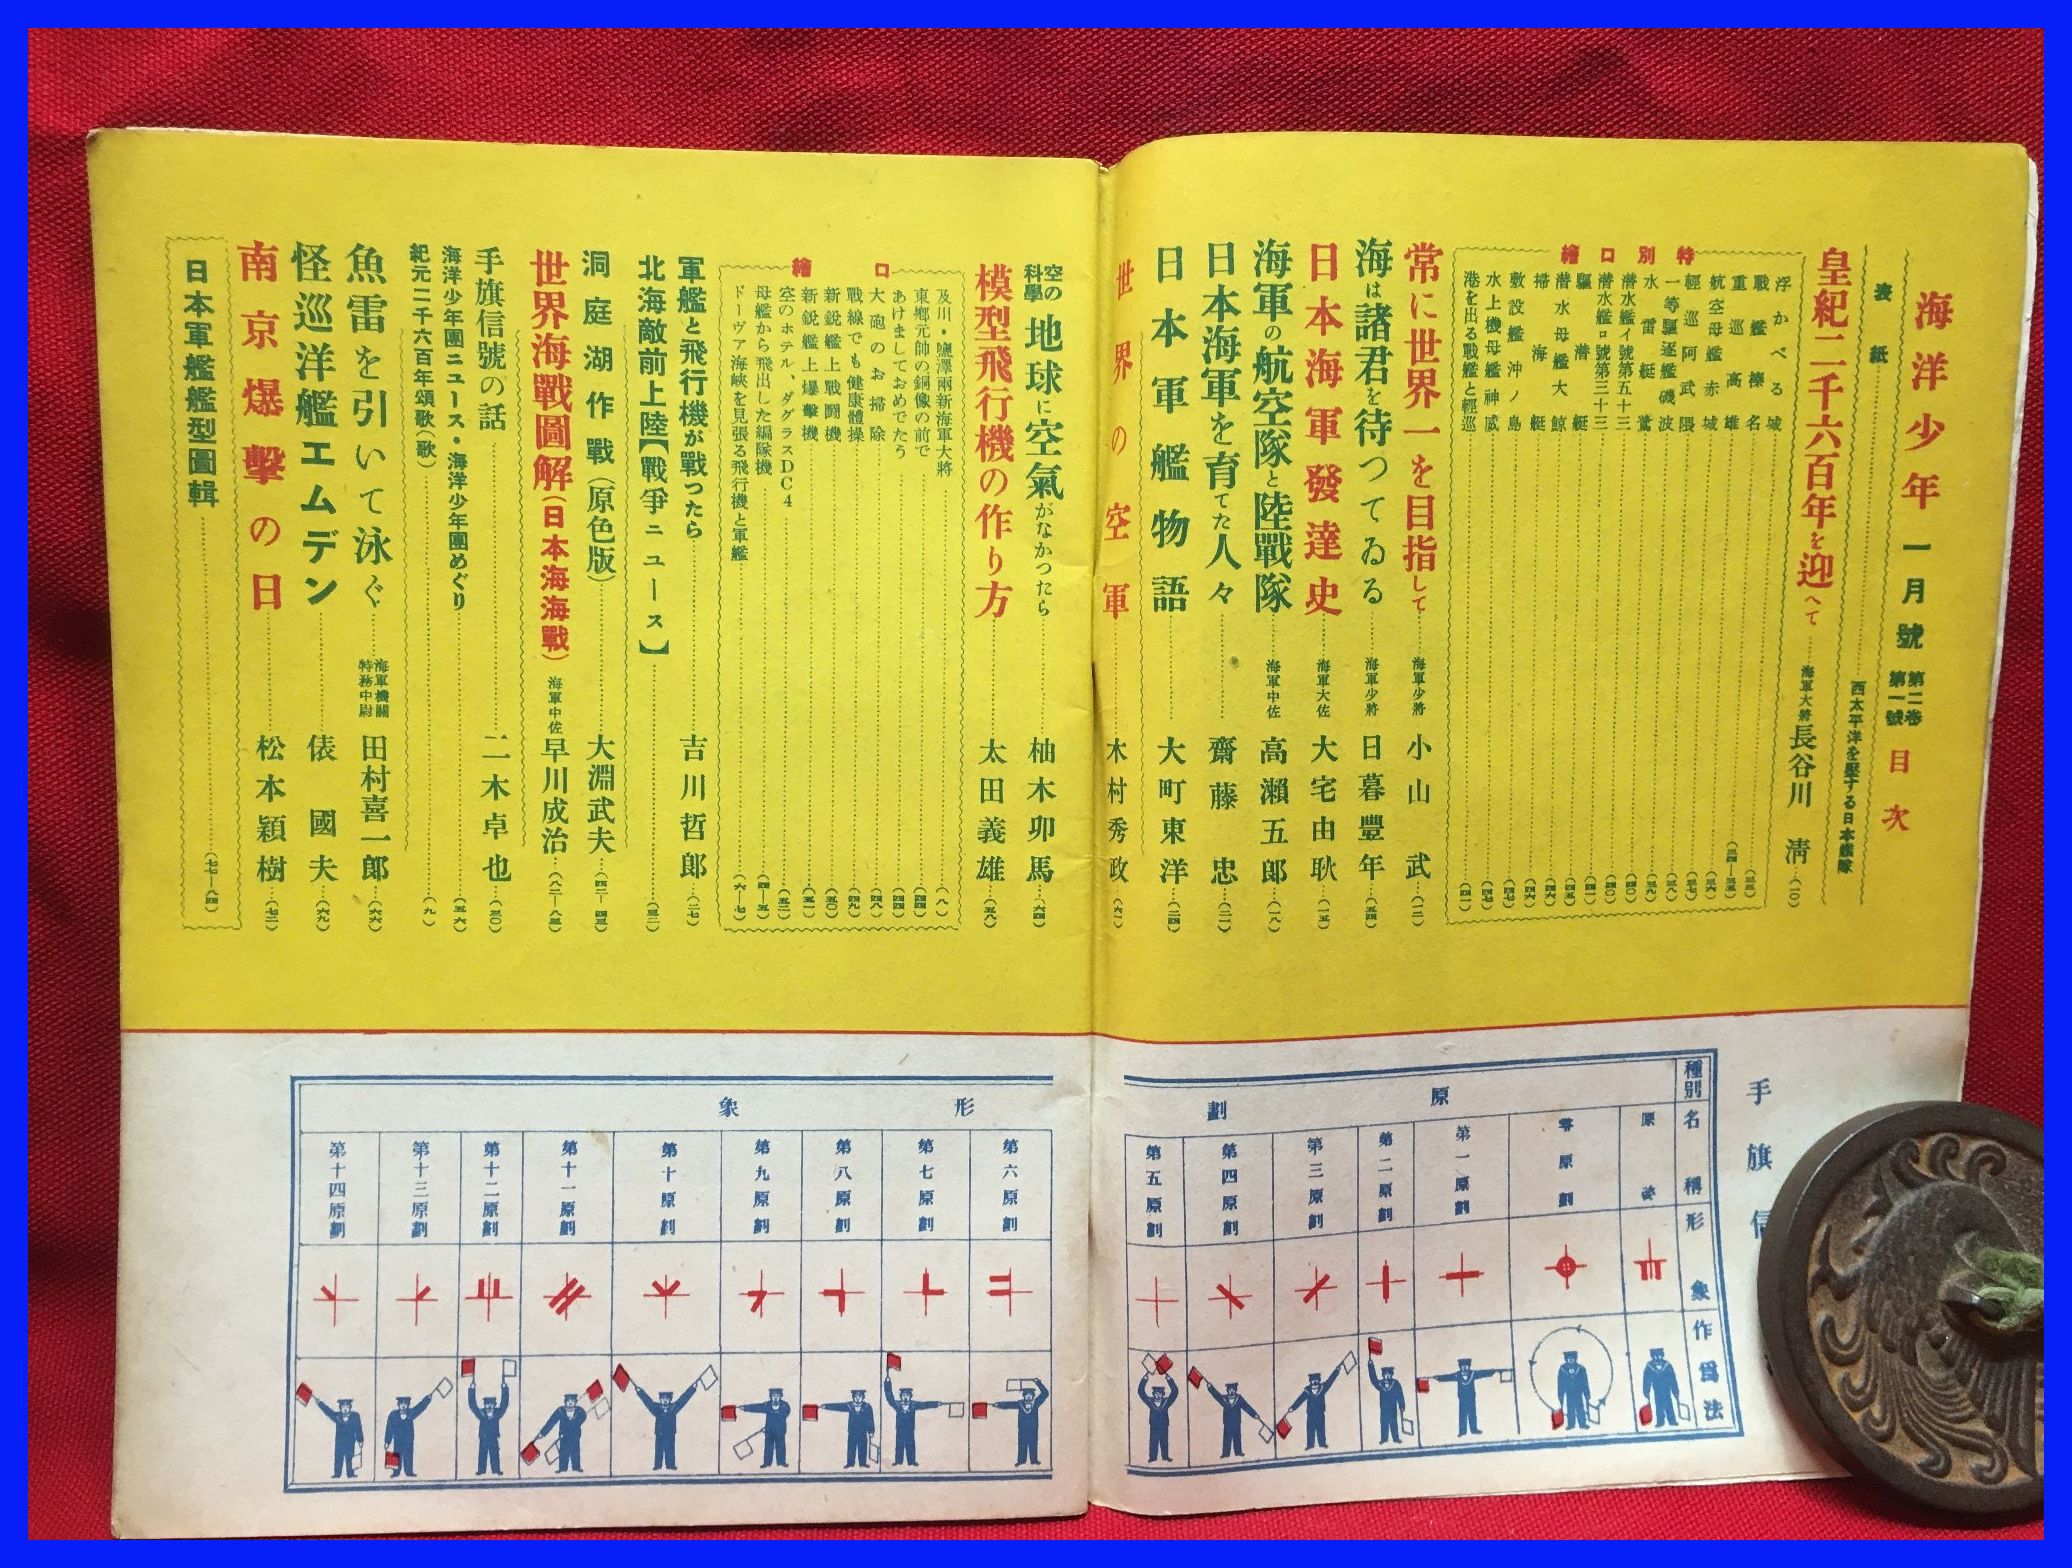 海洋少年 一月號 第二卷 第一號 目次
表紙 西太平洋を壓する日本艦隊
皇紀二千六百年を迎へて 海軍大將 長谷川清 (一〇)
特別口繪
浮かべる城
戰艦榛名 (三三)
重巡高雄 (三四—三五)
航空母艦赤城 (三六)
輕巡阿武隈 (三七)
一等驅逐艦磯波 (三八)
水雷艇鷺 (三九)
潜水艦イ號第五十三 (四〇)
潜水艦ロ號第三十三 (四〇)
驅潜艇 (四一)
潜水母艦大鯨 (四五)
掃海艇 (四六)
敷設艦沖ノ島 (四六)
水上機母艦神威 (四七)
港を出る戰艦と輕巡
常に世界一を目指して 海軍少將 小山武 (一二)
海は諸君を待つてゐる 海軍少將 日暮豐年 (五四)
日本海軍發達史 海軍大佐 大宅由耿 (一五)
海軍の航空隊と陸戰隊 海軍中佐 高瀨五郎 (一八)
日本海軍を育てた人々 齋藤忠 (二一)
日本軍艦物語 大町東洋 (二四)
世界の空軍 木村秀政 (六一)
空の科學 地球に空氣がなかつたら 柚木卯馬 (六四)
模型飛行機の作り方 太田義雄 (五八)
口繪
及川・鹽澤兩新海軍大將 (八)
東鄕元帥の銅像の前で (四四)
あけましておめでたう (四四)
大砲のお掃除 (四八)
戰線でも健康體操 (四九)
新銳艦上戰鬪機 (五〇)
新銳艦上爆擊機 (五一)
空のホテル、ダグラスDC4 (五二)
母艦から飛出した編隊機 (四—五)
ドーヴァ海峽を見張る飛行機と軍艦 (六—七)
軍艦と飛行機が戰つたら 吉川哲郎 (二七)
北海敵前上陸【戰爭ニュース】 (三二)
洞庭湖作戰(原色版) 大淵武夫 (四二—四三)
世界海戰圖解(日本海海戰) 海軍中佐 早川成治 (八二—八三)
手旗信號の話 二木卓也 (三〇)
海洋少年團ニュース・海洋少年團めぐり (五六)
紀元二千六百年頌歌(歌) (九)
魚雷を引いて泳ぐ 海軍機關特務中尉 田村喜一郎 (六六)
怪巡洋艦エムデン 俵國夫 (六九)
南京爆擊の日 松本穎樹 (七二)
日本軍艦艦型圖輯 (七七—八四)
手旗信
種別 原劃 形象
名稱
形象
作爲法
原姿
零原劃
第一原劃
第二原劃
第三原劃
第四原劃
第五原劃
第六原劃
第七原劃
第八原劃
第九原劃
第十原劃
第十一原劃
第十二原劃
第十三原劃
第十四原劃